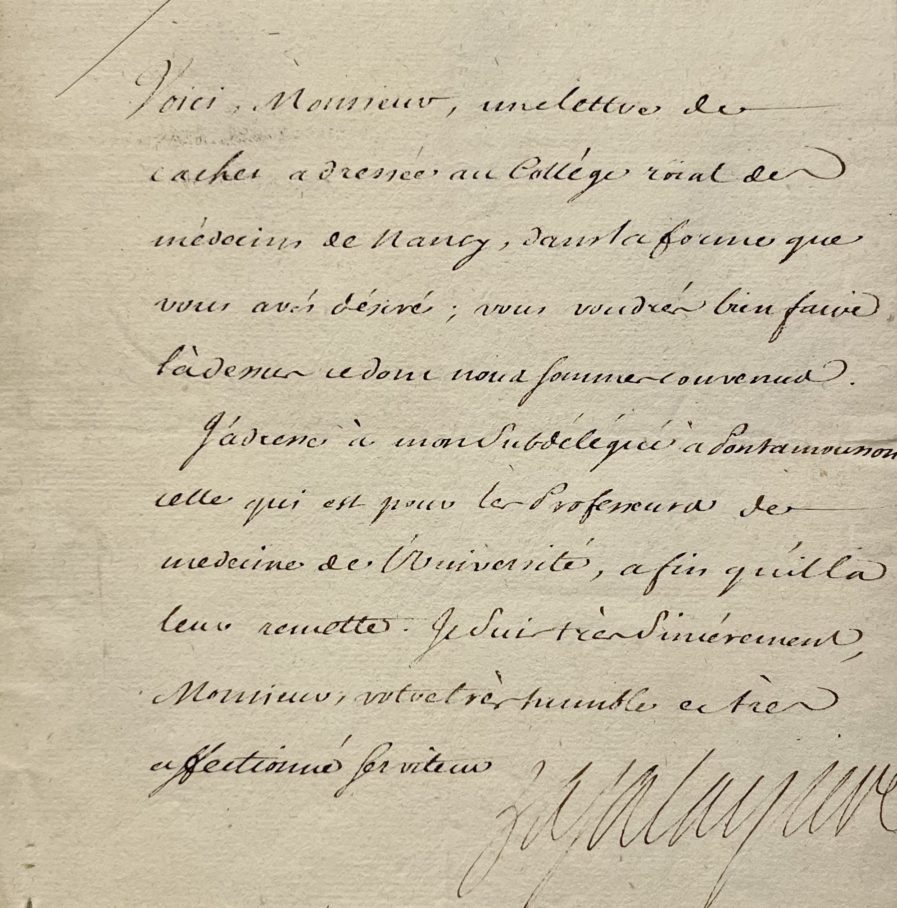 Voici, Monsieur, une lettre de
cachet adressée au Collége roial de
médecins de Nancy, dans la forme que
vous avés désiré ; vous voudrés bien faire
làdessus ce dont nous sommes convenus.
J'adresse à mon Subdélégué à Pontamousson
celle qui est pour les Professeurs de
medecine de l'Université, afin qu'il la
leur remette. Je suis très sincérement,
Monsieur, votre très humble et très
affectionné serviteur
De la Galaiziere